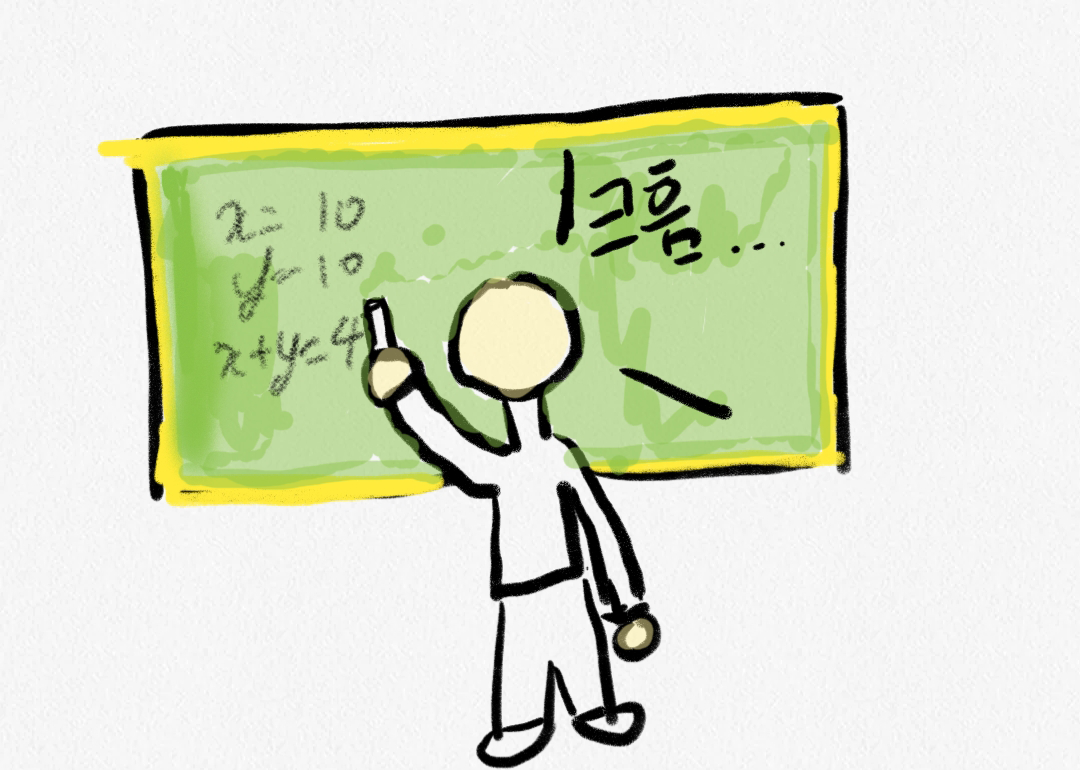 x= 10
y= 10
x+y=4
크흠...